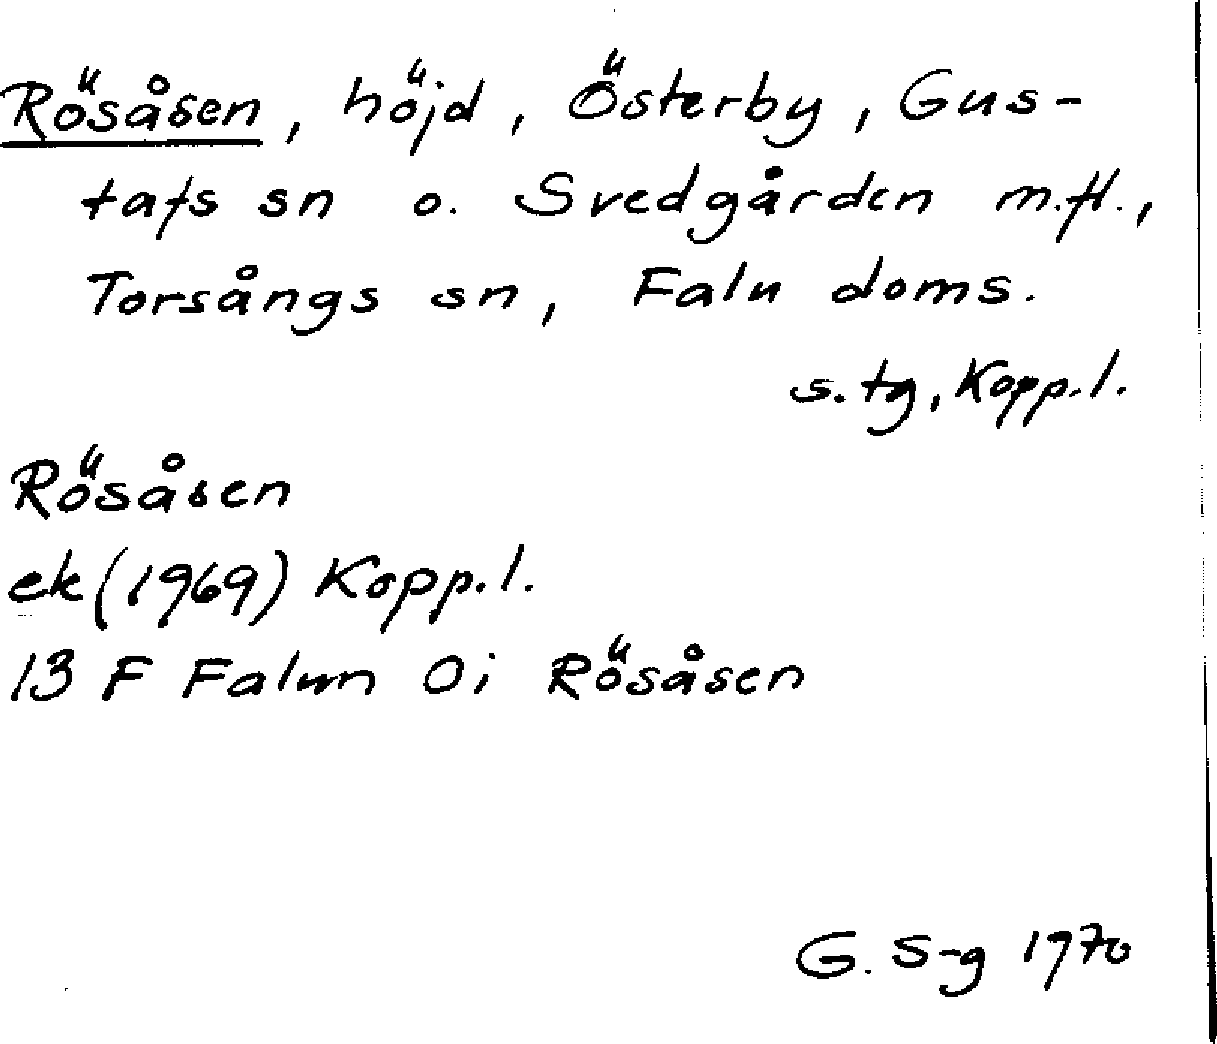 Rösåsen, höjd, Österby, Gus-
tafs sn o. Svedgården m.fl.,
Torsångs sn, Falu doms.
s. tg, Kopp. l.
Rösåsen
ek (1969) Kopp. l.
13 F Falun 0i Rösåsen
G. S-g 1970